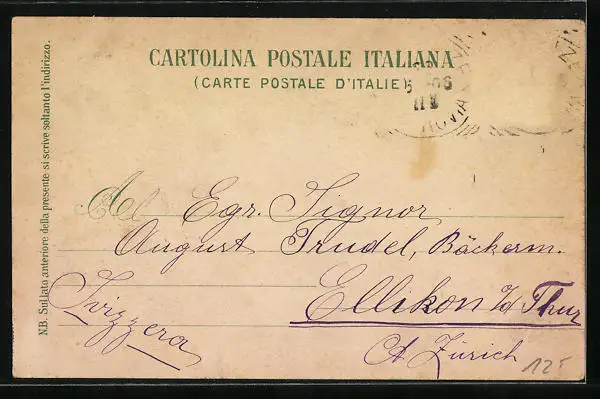 CARTOLINA POSTALE ITALIANA
(CARTE POSTALE D'ITALIE)
N.B. Sul lato anteriore della presente si scrive soltanto l'indirizzo.
Al Egr. Signor
August Trudel, Bäckerm.
Ellikon a/d Thur
Svizzera
Ct Zürich